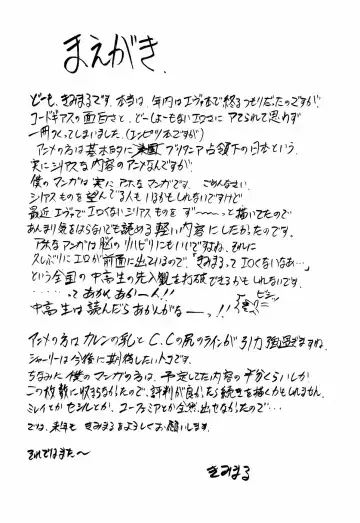 まえがき.
どーも、きみまるです。本当は、年内はエヴァ本で終るつもりだったのですが、
コードギアスの面白さと、どーしよーもないエロさに アテられて思わず
一冊つくってしまいました。(エンピツ本ですが)
アニメの方は基本的に ブリタニア占領下の日本という、
実にシリアスな内容のアニメなんですが、
僕のマンガは実にアホなマンガです。 ごめんなさい。
シリアスものを望んでる人もいるかもしれないですけど
最近 エヴァで エロくないシリアスものを ず〜〜〜っと描いてたので
あんまり気をはらないでも読める軽い内容にしたかったのです。
アホなマンガは脳のリハビリにもいいですよね。それに
久しぶりにエロが前面に出ているので、「きみまるってエロくないなあ…」
という全国の中高生の先入観を打破できるかもしれない。
・・・・・・って あかん、あかーん!!
中高生は読んだらあかんがなーっ。!!
アニメの方はカレンの乳と C.Cの尻のラインが引力強過ぎますね。
シャーリーは今後に期待したいトコです。
ちなみに 僕のマンガの方は、予定してた内容の半分くらいしか
この枚数に収まらなかったので、評判が良かったら続きを描くかもしれません。
ミレイとか セシルとか、ユーフェミアとか全然出せなかったので・・・
では、来年も きみまるをよろしくお願いします。
それではまた〜
きみまる